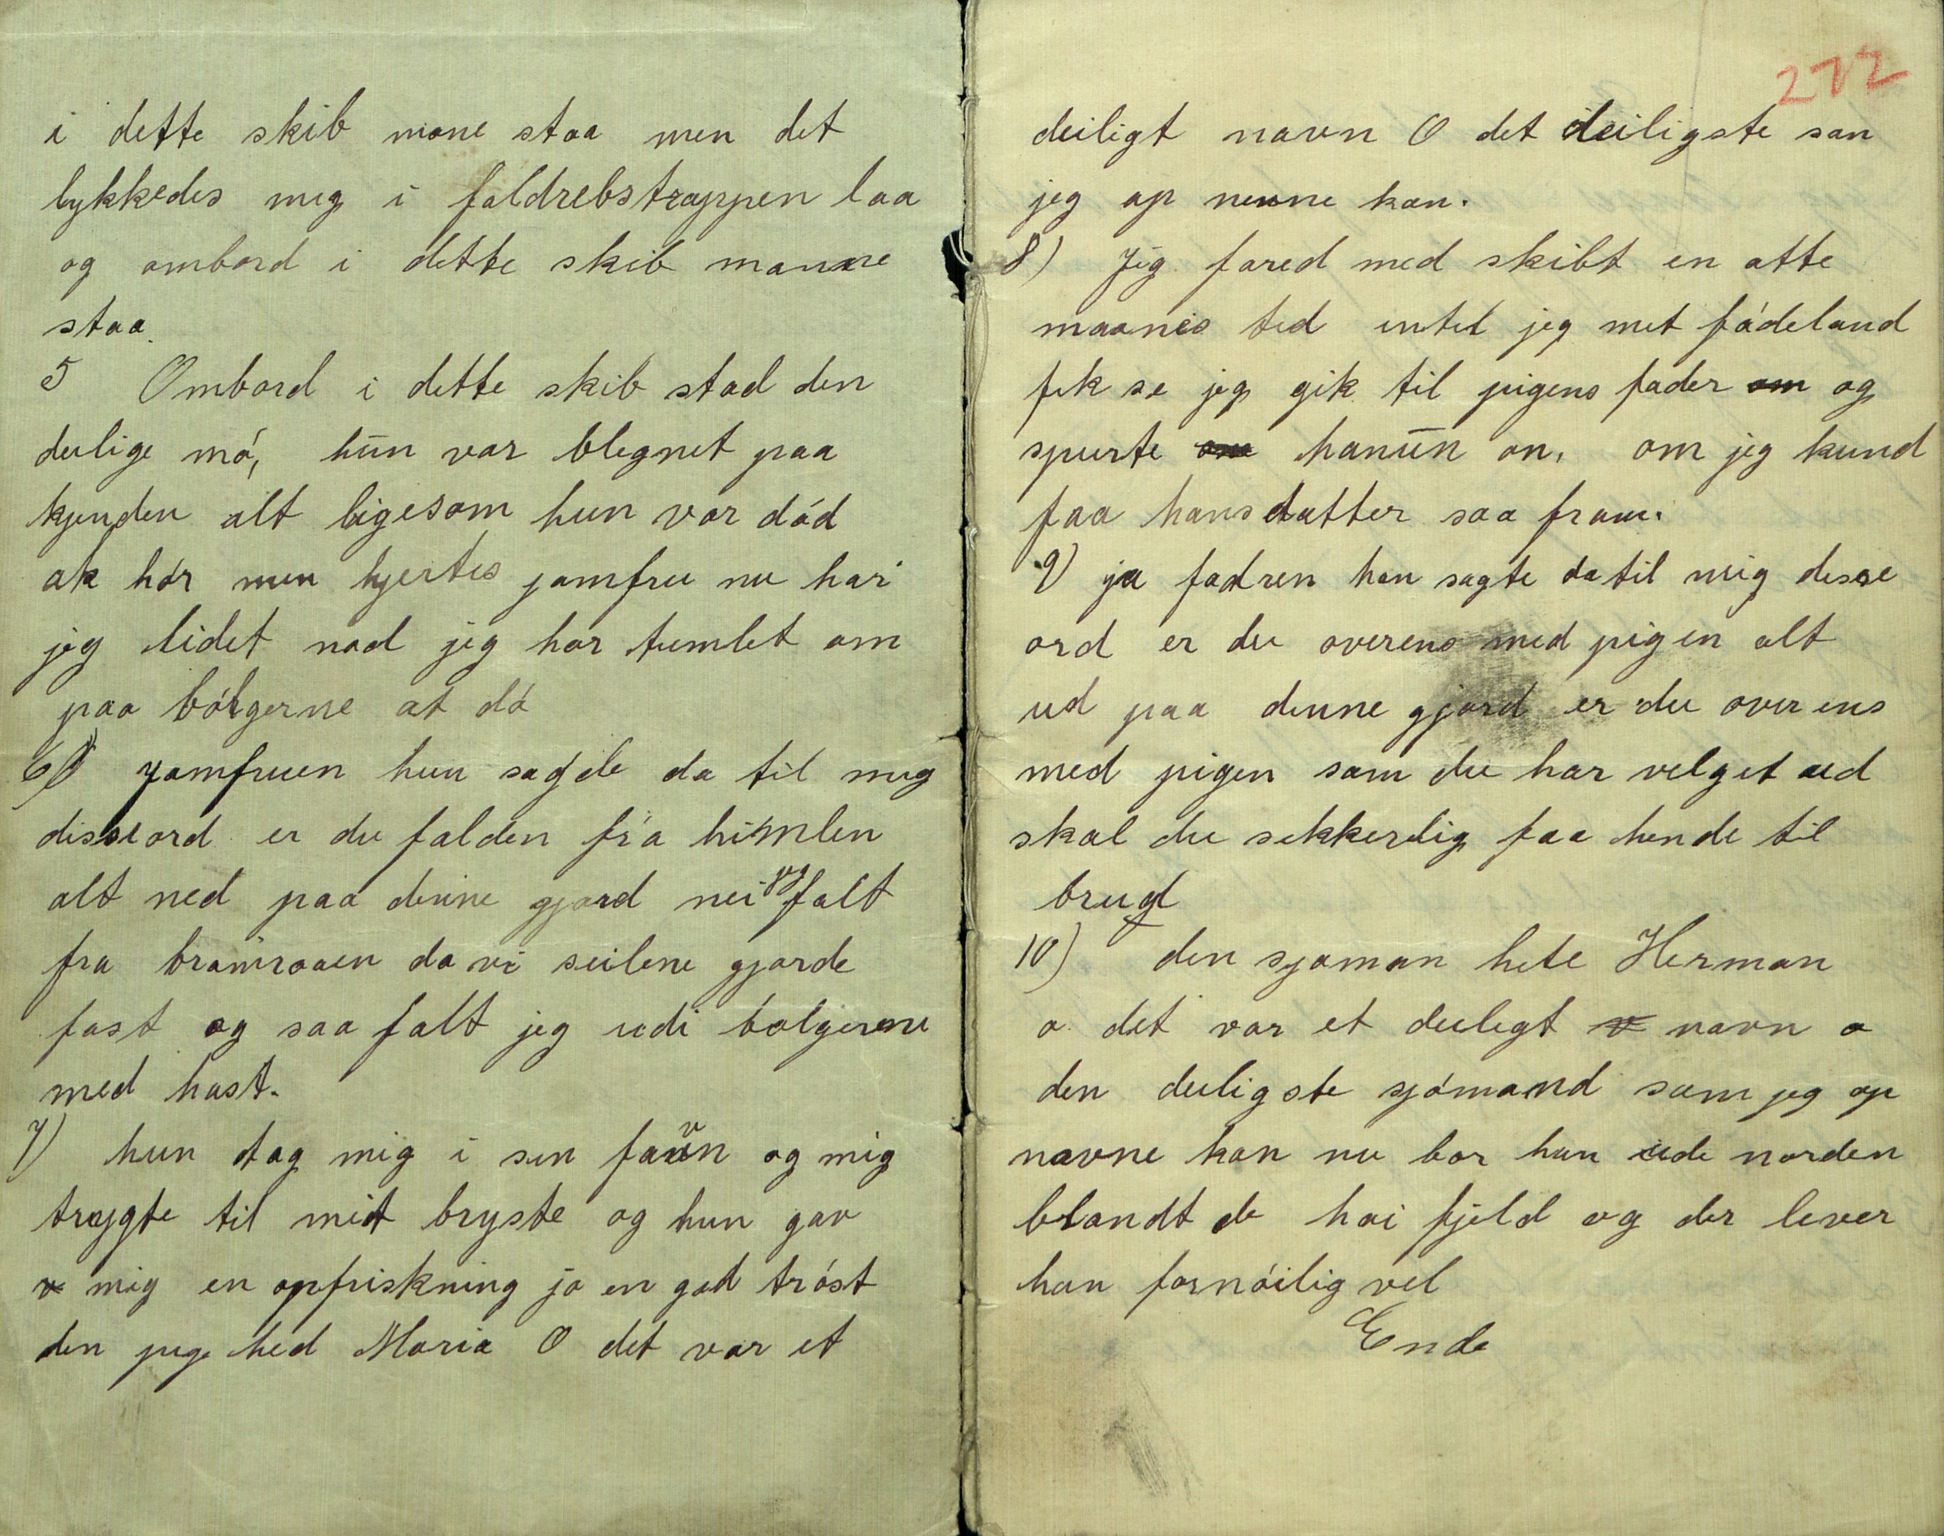 i dette skib mone staa men det
lykkedes mig i faldrebstrappen laa
og ombord i dette skib manne
staa.
5 Ombord i dette skib stod den
deilige mó, hūn var blegnet paa
kjenden alt ligesom hun var dód
ak hór min hjertes jomfru nu har
jeg lidet nod jeg har tumlet om
paa bólgerne at dó
6) O jomfruen hun sagde da til mig
disse ord er du falden fra himlen
alt ned paa denne gjord nei jeg falt
fra bramraaen da vi seilene gjorde
fast og saa falt jeg udi bølgerene
med hast.
7) hun tog mig i sin favn og mig
trygte til mit bryste og hun gav
mig en opfriskning ja en god tróst
den pige hed Maria O det var et
272
deiligt navn O det deiligste som
jeg op nevne kan.
8) Jeg fared med skibt en otte
maanes tid intil jeg mit fódeland
fik se jeg gik til pigens fader om og
spurte om hanūn on, om jeg kund
faa hans datter saa from.
9) ja fadren han sagte da til mig disse
ord er du overens med pigen alt
ud paa denne gjord er du over ens
med pigen som du har velget ud
skal du sekkerlig faa hende til
brud
10) den sjøman hete Herman
o det var et deiligt v navn o
den deiligste sjómand som jeg op
navne kan nu bor han ude norden
blandt de høi fjeld og der lever
han fornóilig vel
Ende